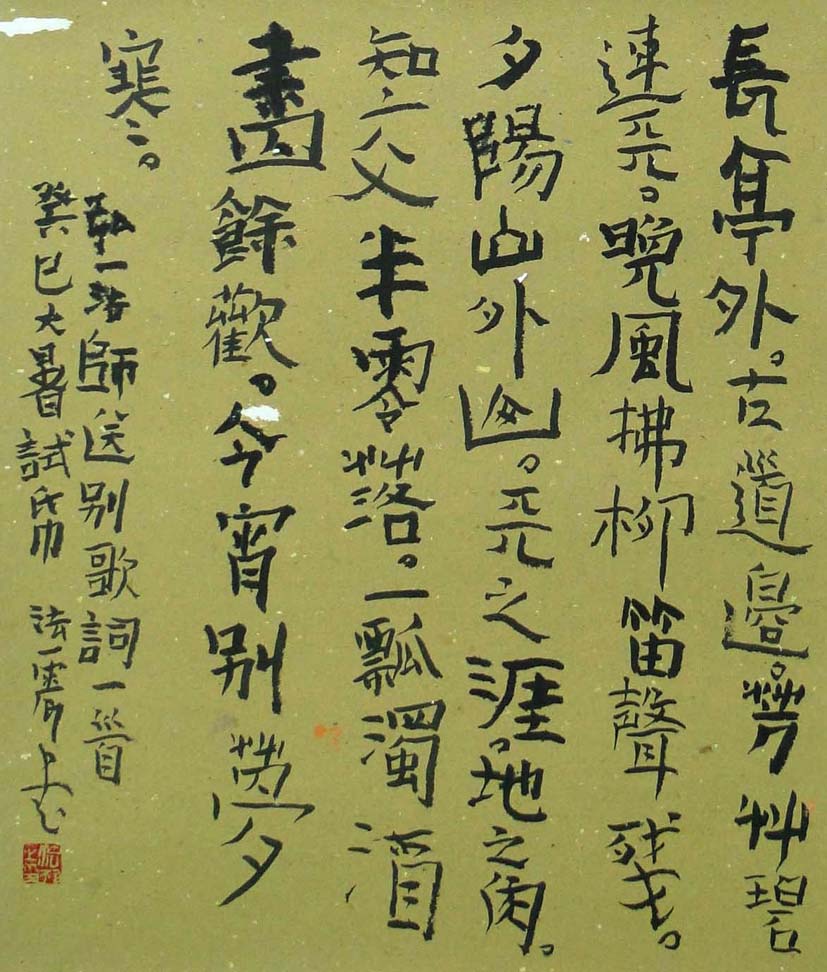 長亭外。古道邊。芳艸碧
連天。晚風拂柳笛聲殘。
夕陽山外山。天之涯。地之角。
知交半零落。一瓢濁酒
盡餘歡。今宵別夢
寒。
弘一法師送別歌詞一首
癸巳大暑試帋 法一